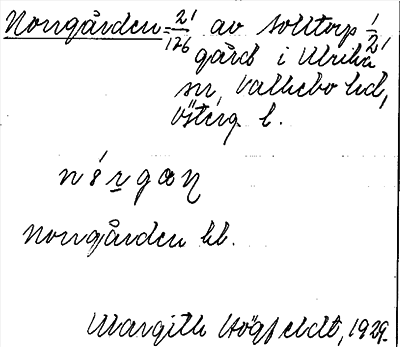 Norrgården = 21/176 av Solltorp 1/2 1
gård i Ulrika
sn, Vallebo hd,
Österg. l.
nórgaɳ
Norrgården hb.
Margith Högfeldt, 1929.